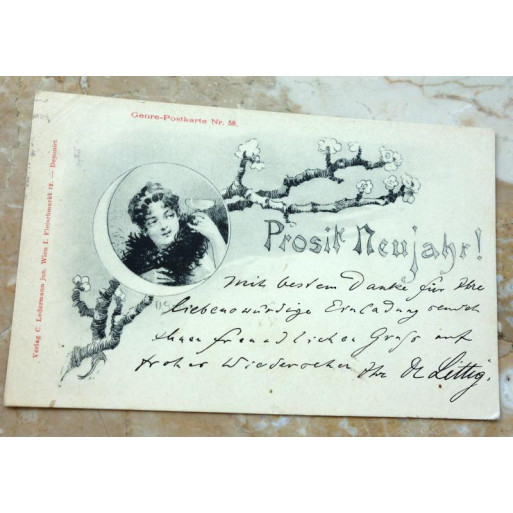 Genre-Postkarte Nr. 58.
Verlag C. Ledermann jun. Wien I. Fleischmarkt 12. — Deponirt
Prosit Neujahr!
Mit bestem Danke für Ihre
liebenswürdige Einladung sendet
Ihnen freundlichen Gruß auf
frohes Wiedersehen Ihr Dr Littig.